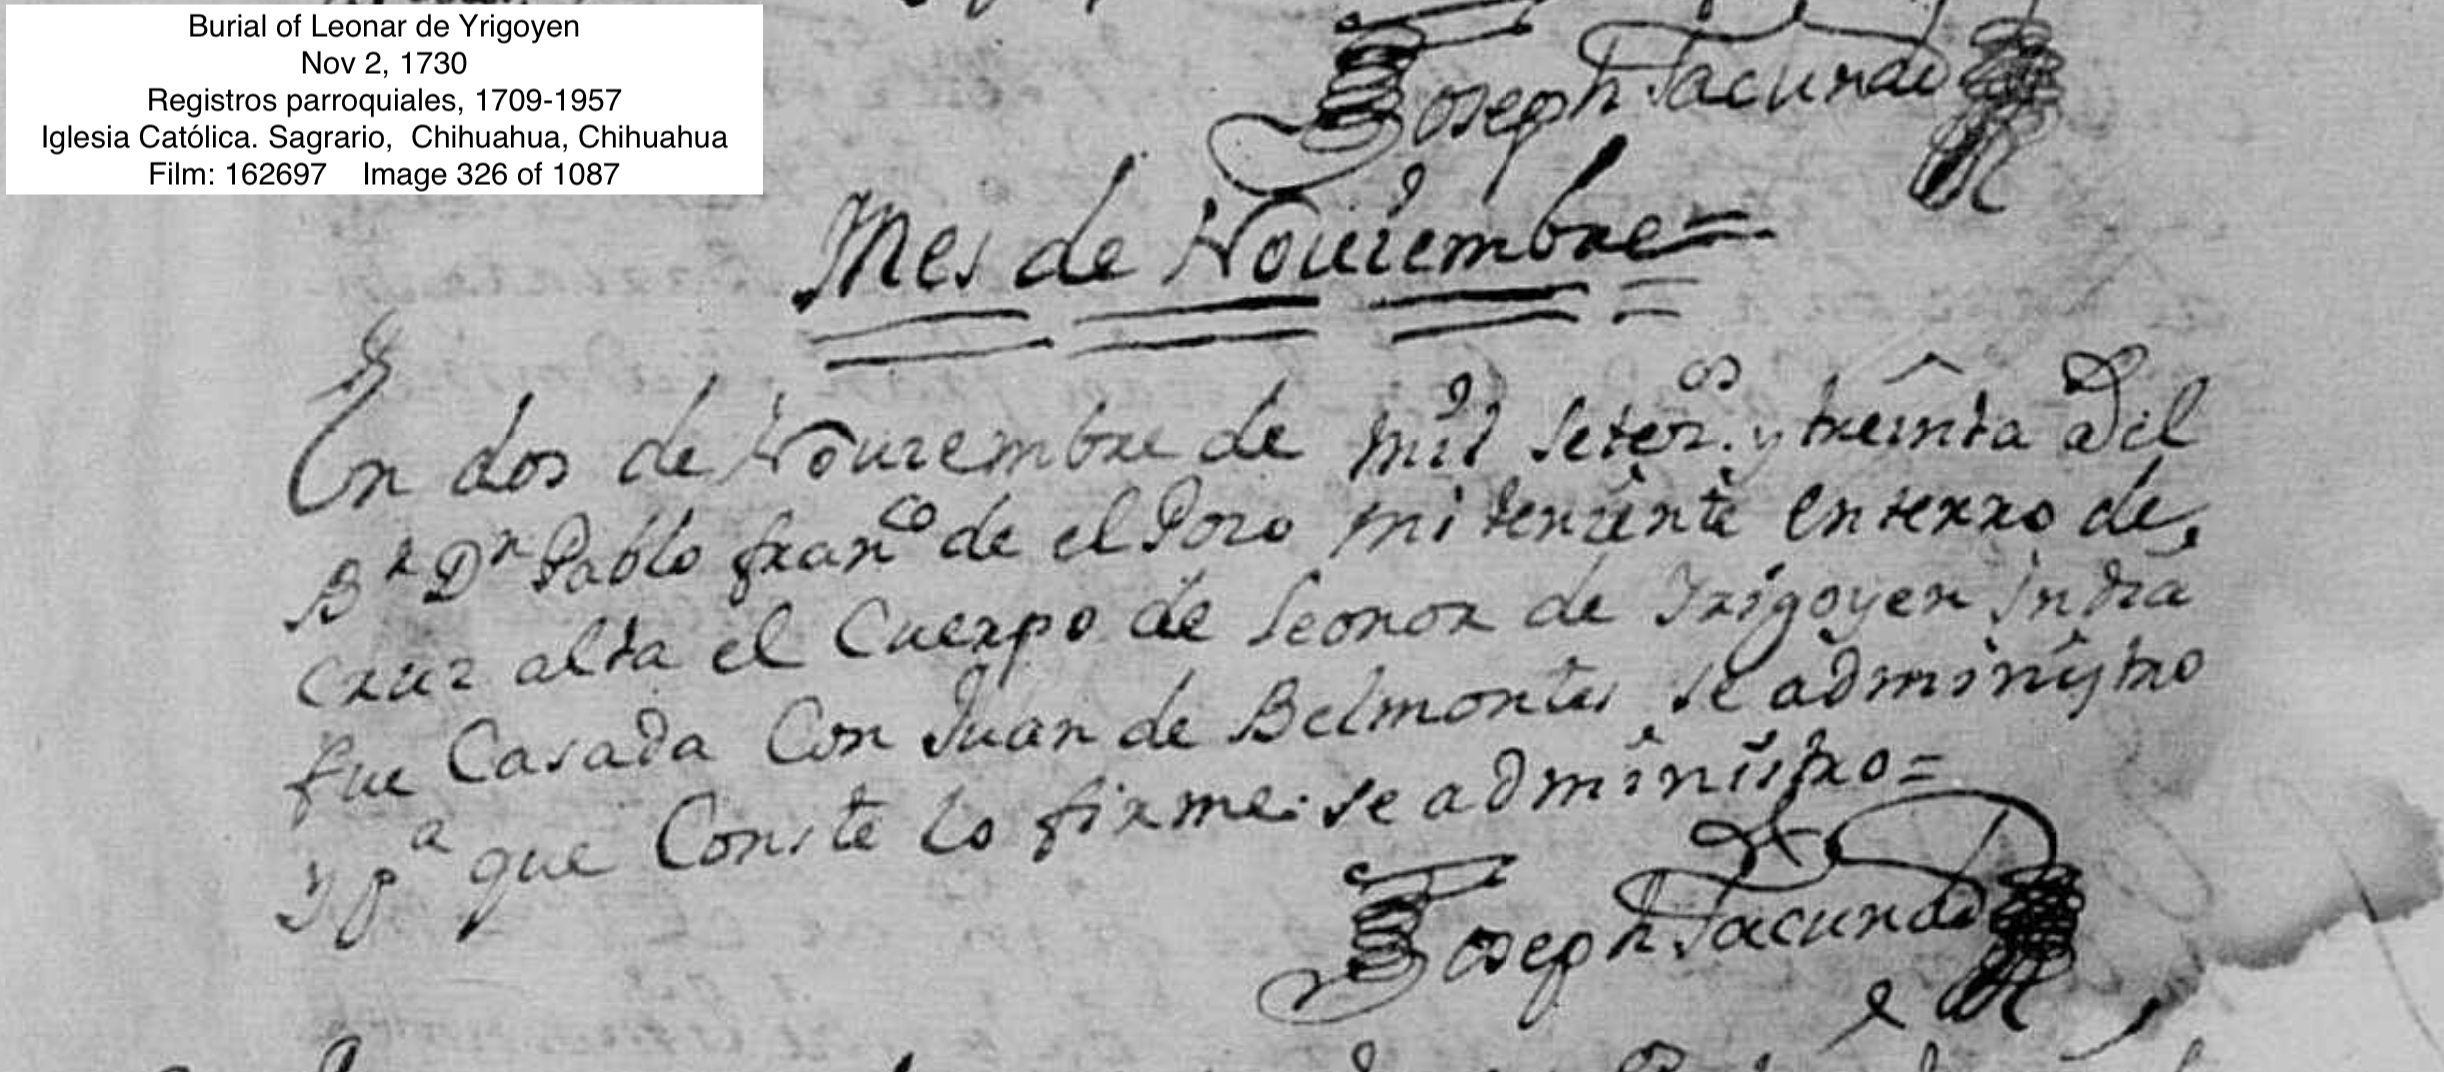 Burial of Leonar de Yrigoyen
Nov 2, 1730
Registros parroquiales, 1709-1957
Iglesia Católica. Sagrario, Chihuahua, Chihuahua
Film: 162697 Image 326 of 1087
Joseph Facundo
Mes de Nouiembre=
En dos de Nouiembre de mil setez.os y treinta a el
Br Dn Pablo franco de el Pozo mi teniente enterro de
cruz alta el Cuerpo de Leonor de Yrigoyen india
fue Casada Con Juan de Belmontes se administro
y pa que Conste lo firme. se administro=
Joseph Facundo